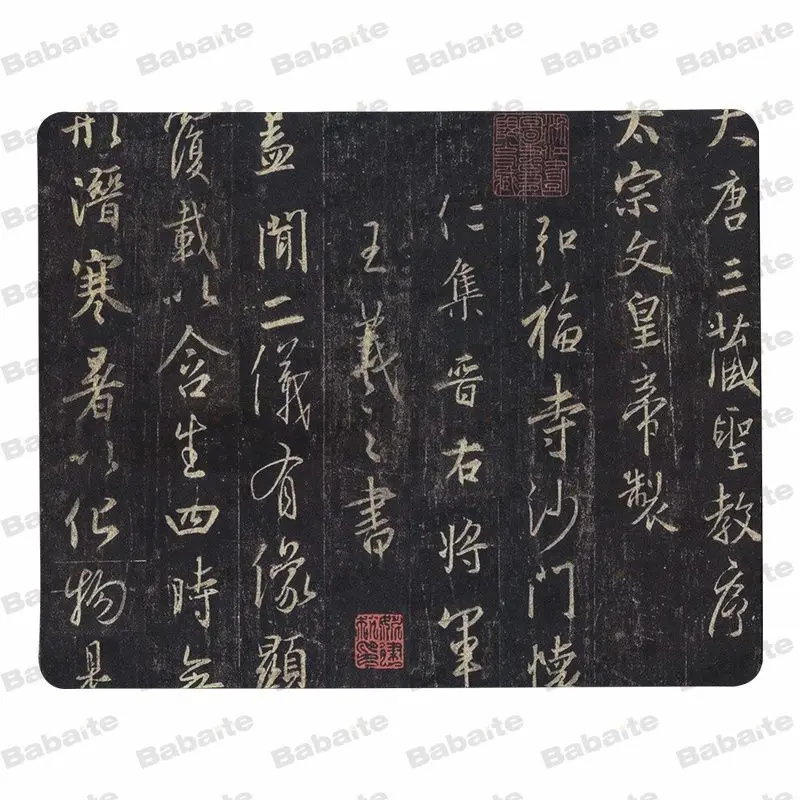 大唐三藏聖教序
太宗文皇帝製
弘福寺沙門懷
仁集晉右將軍
王羲之書
蓋聞二儀有像顯
覆載以含生四時無
形潛寒暑以化物是
Babaite